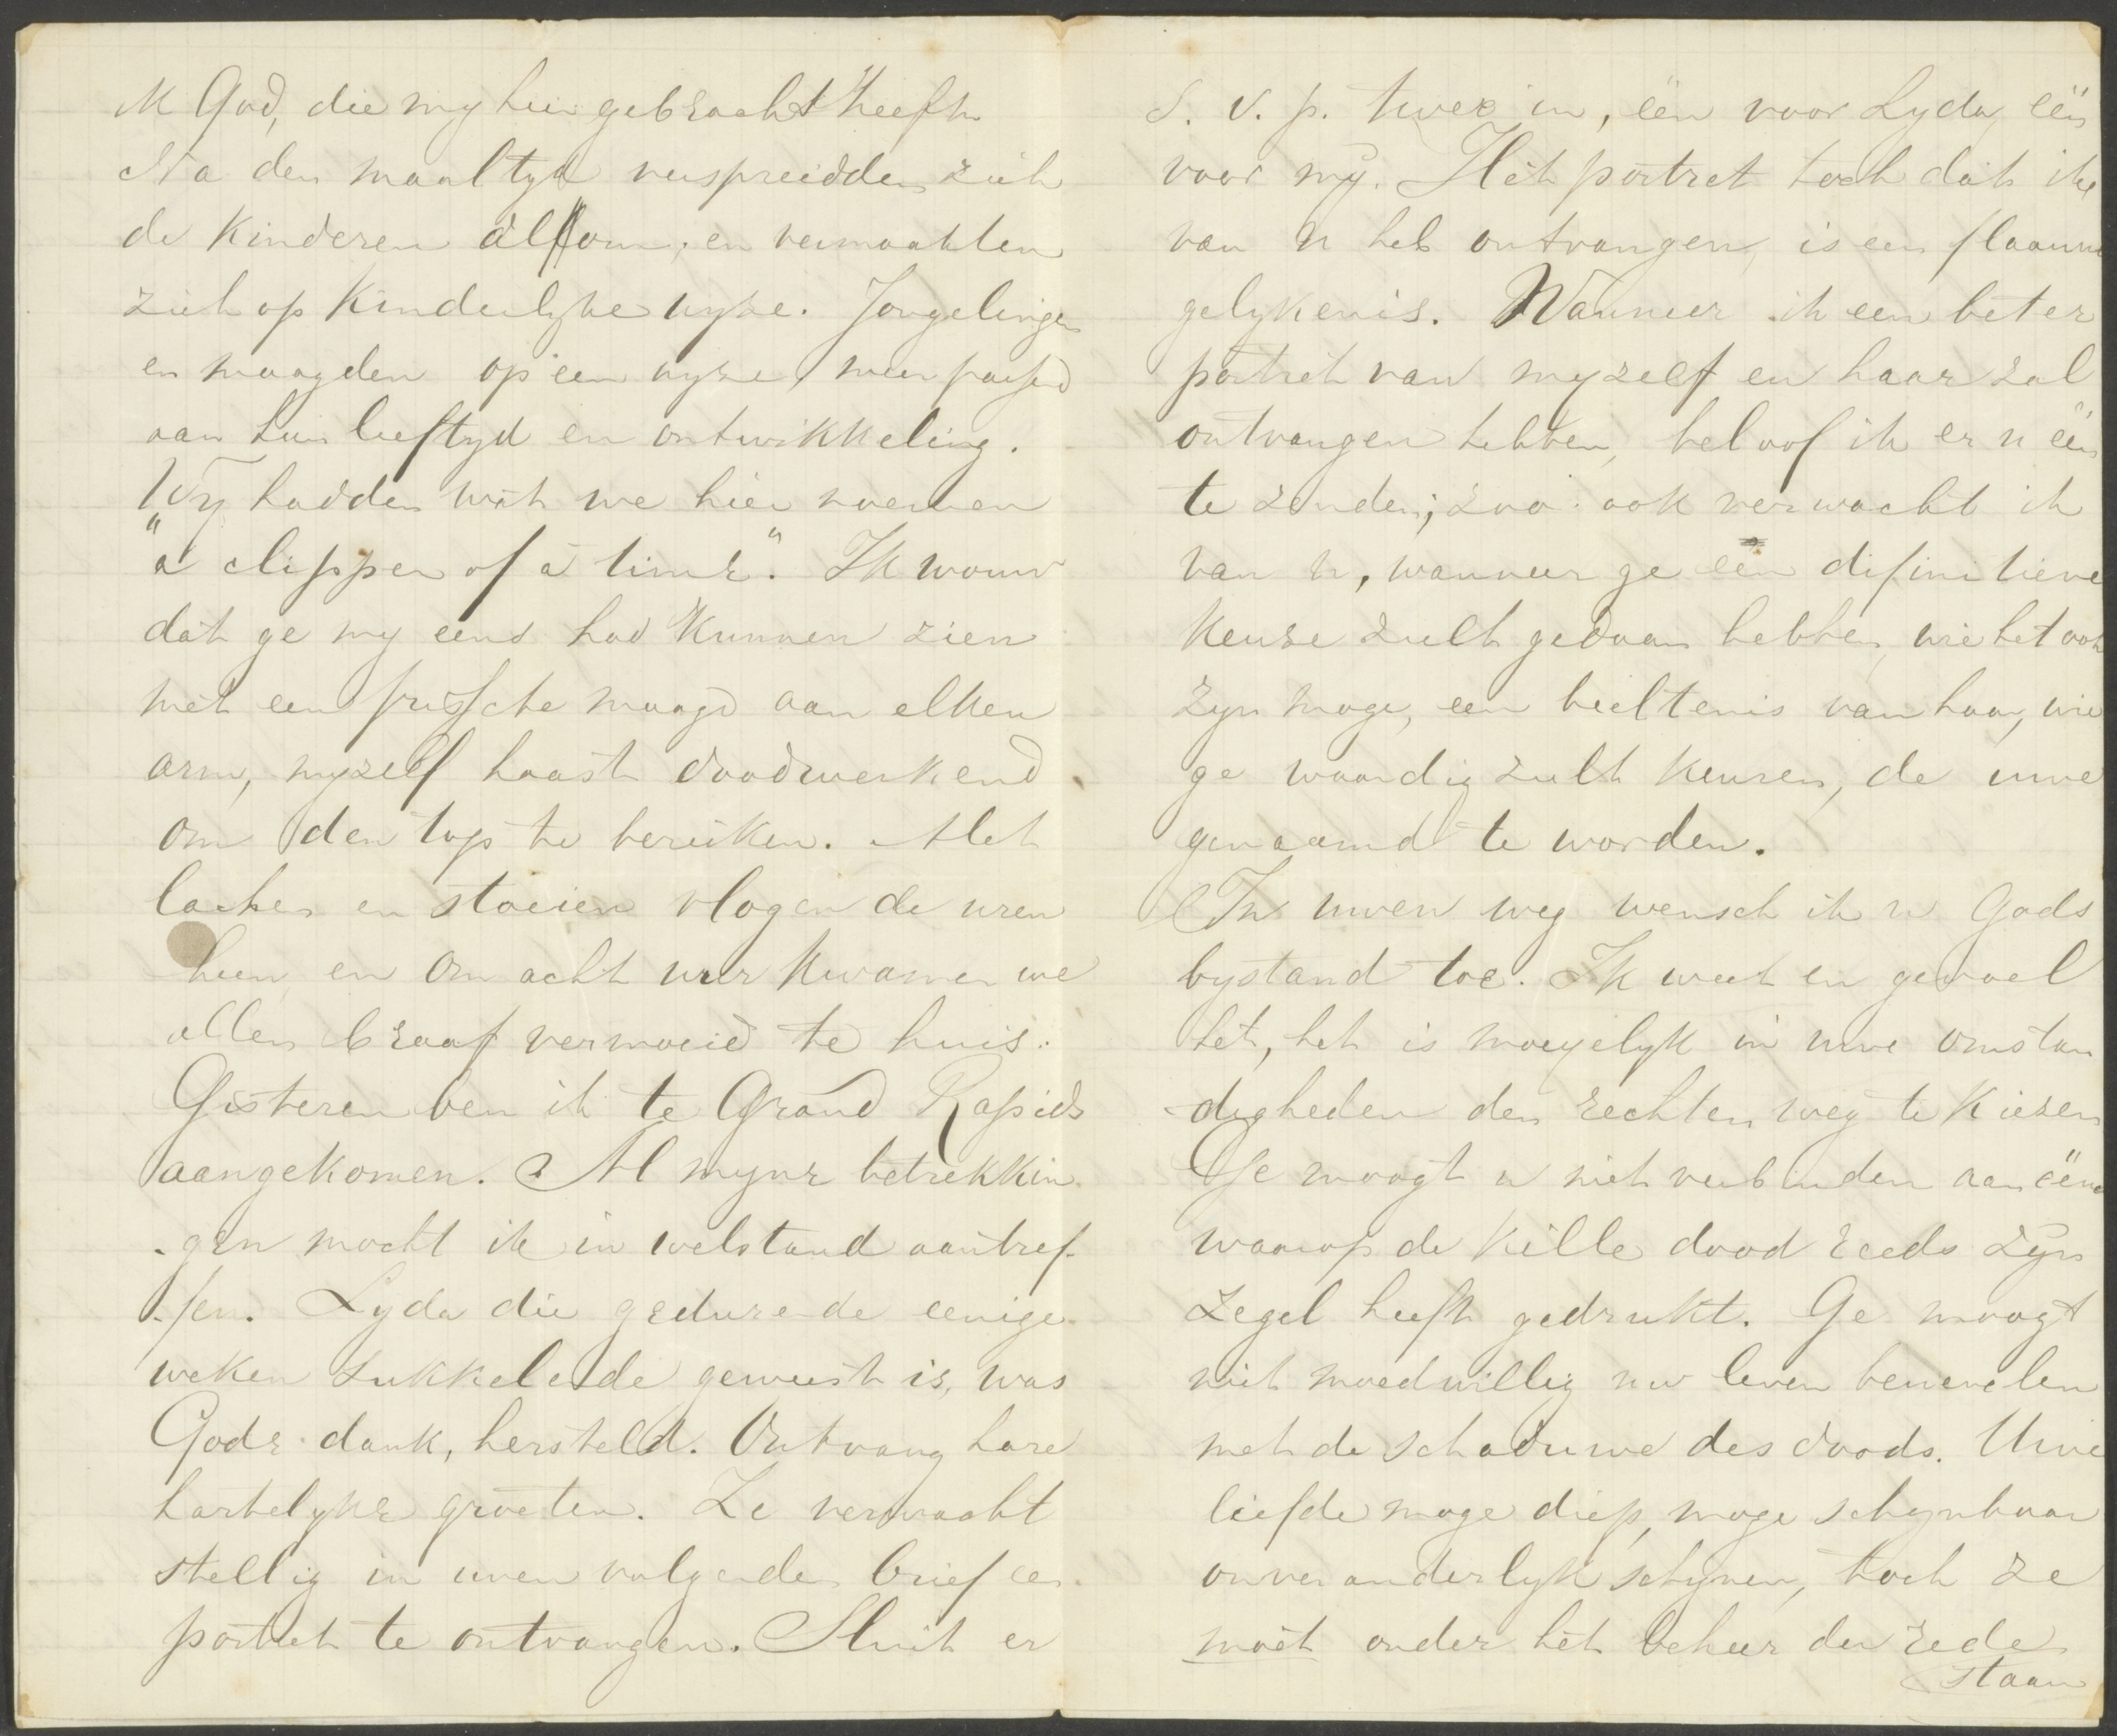 ik God, die my hier gebracht heeft.
Na den maaltyd verspreidden zich
de kinderen alom, en vermaakten
zich op kinderlyke wyze. Jongelingen
en maagden op een wyze, meer passend
aan hun leeftyd en ontwikkeling.
Wy hadden wat we hier noemen
"a clipper of a time". Ik wouw
dat ge my eens had kunnen zien
met een frissche maagd aan elken
arm, myzelf haast doodwerkend
om den top te bereiken. Met
lachen en stoeien vlogen de uren
heen, en om acht uur kwamen we
allen braaf vermoeid te huis.
Gisteren ben ik te Grand Rapids
aangekomen. Al myne betrekkin
-gen mocht ik in welstand aantref-
-fen. Lyda die gedurende eenige
weken sukkelende geweest is, was
Gode dank, hersteld. Ontvang hare
hartelyke groeten. Ze verwacht
stellig in uwen volgenden brief een
portret te ontvangen. Sluit er
S. V. p. twee in, één voor Lyda, één
voor my. Het portret toch dat ik
van U heb ontvangen, is een flaauwe
gelykenis. Wanneer ik een beter
portret van myzelf en haar zal
ontvangen hebben, beloof ik er u één
te zenden; zoo ook verwacht ik
van u, wanneer ge een difinitieve
keuze zult gedaan hebben, wie het ook
zyn moge, een beeltenis van haar, wie
ge waardig zult keuren, de uwe
genaamd te worden.
In uwen weg wensch ik u Gods
bystand toe. Ik weet en gevoel
het, het is moeyelyk in uwe omstan
-digheden den rechten weg te kiezen
Ge moogt u niet verbinden aan ééne
waarop de kille dood reeds zyn
zegel heeft gedrukt. Ge moogt
niet moedwillig uw leven benevelen
met de schaduwe des doods. Uwe
liefde moge diep, moge schynbaar
onveranderlyk schynen, toch ze
moet onder het beheer der rede
staan